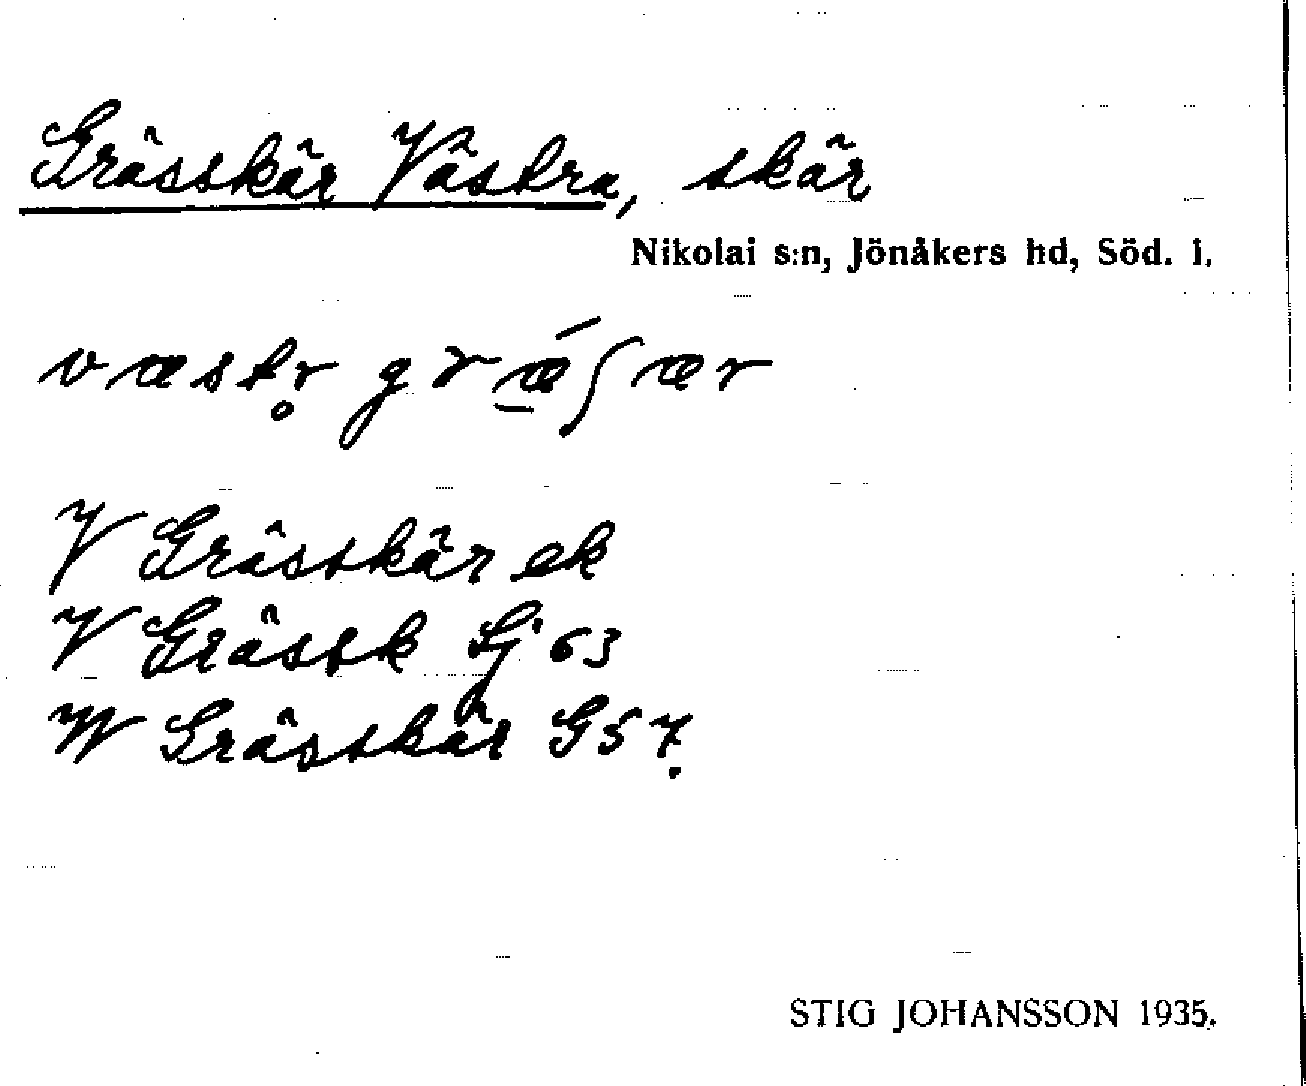 Grässkär Västra, skär
Nikolai s:n, Jönåkers hd, Söd. l.
væstr̥ grǽ̠ʃær
V Grässkär ek
V Grässk Sj 63
W Grässkär G 57.
STIG JOHANSSON 1935.